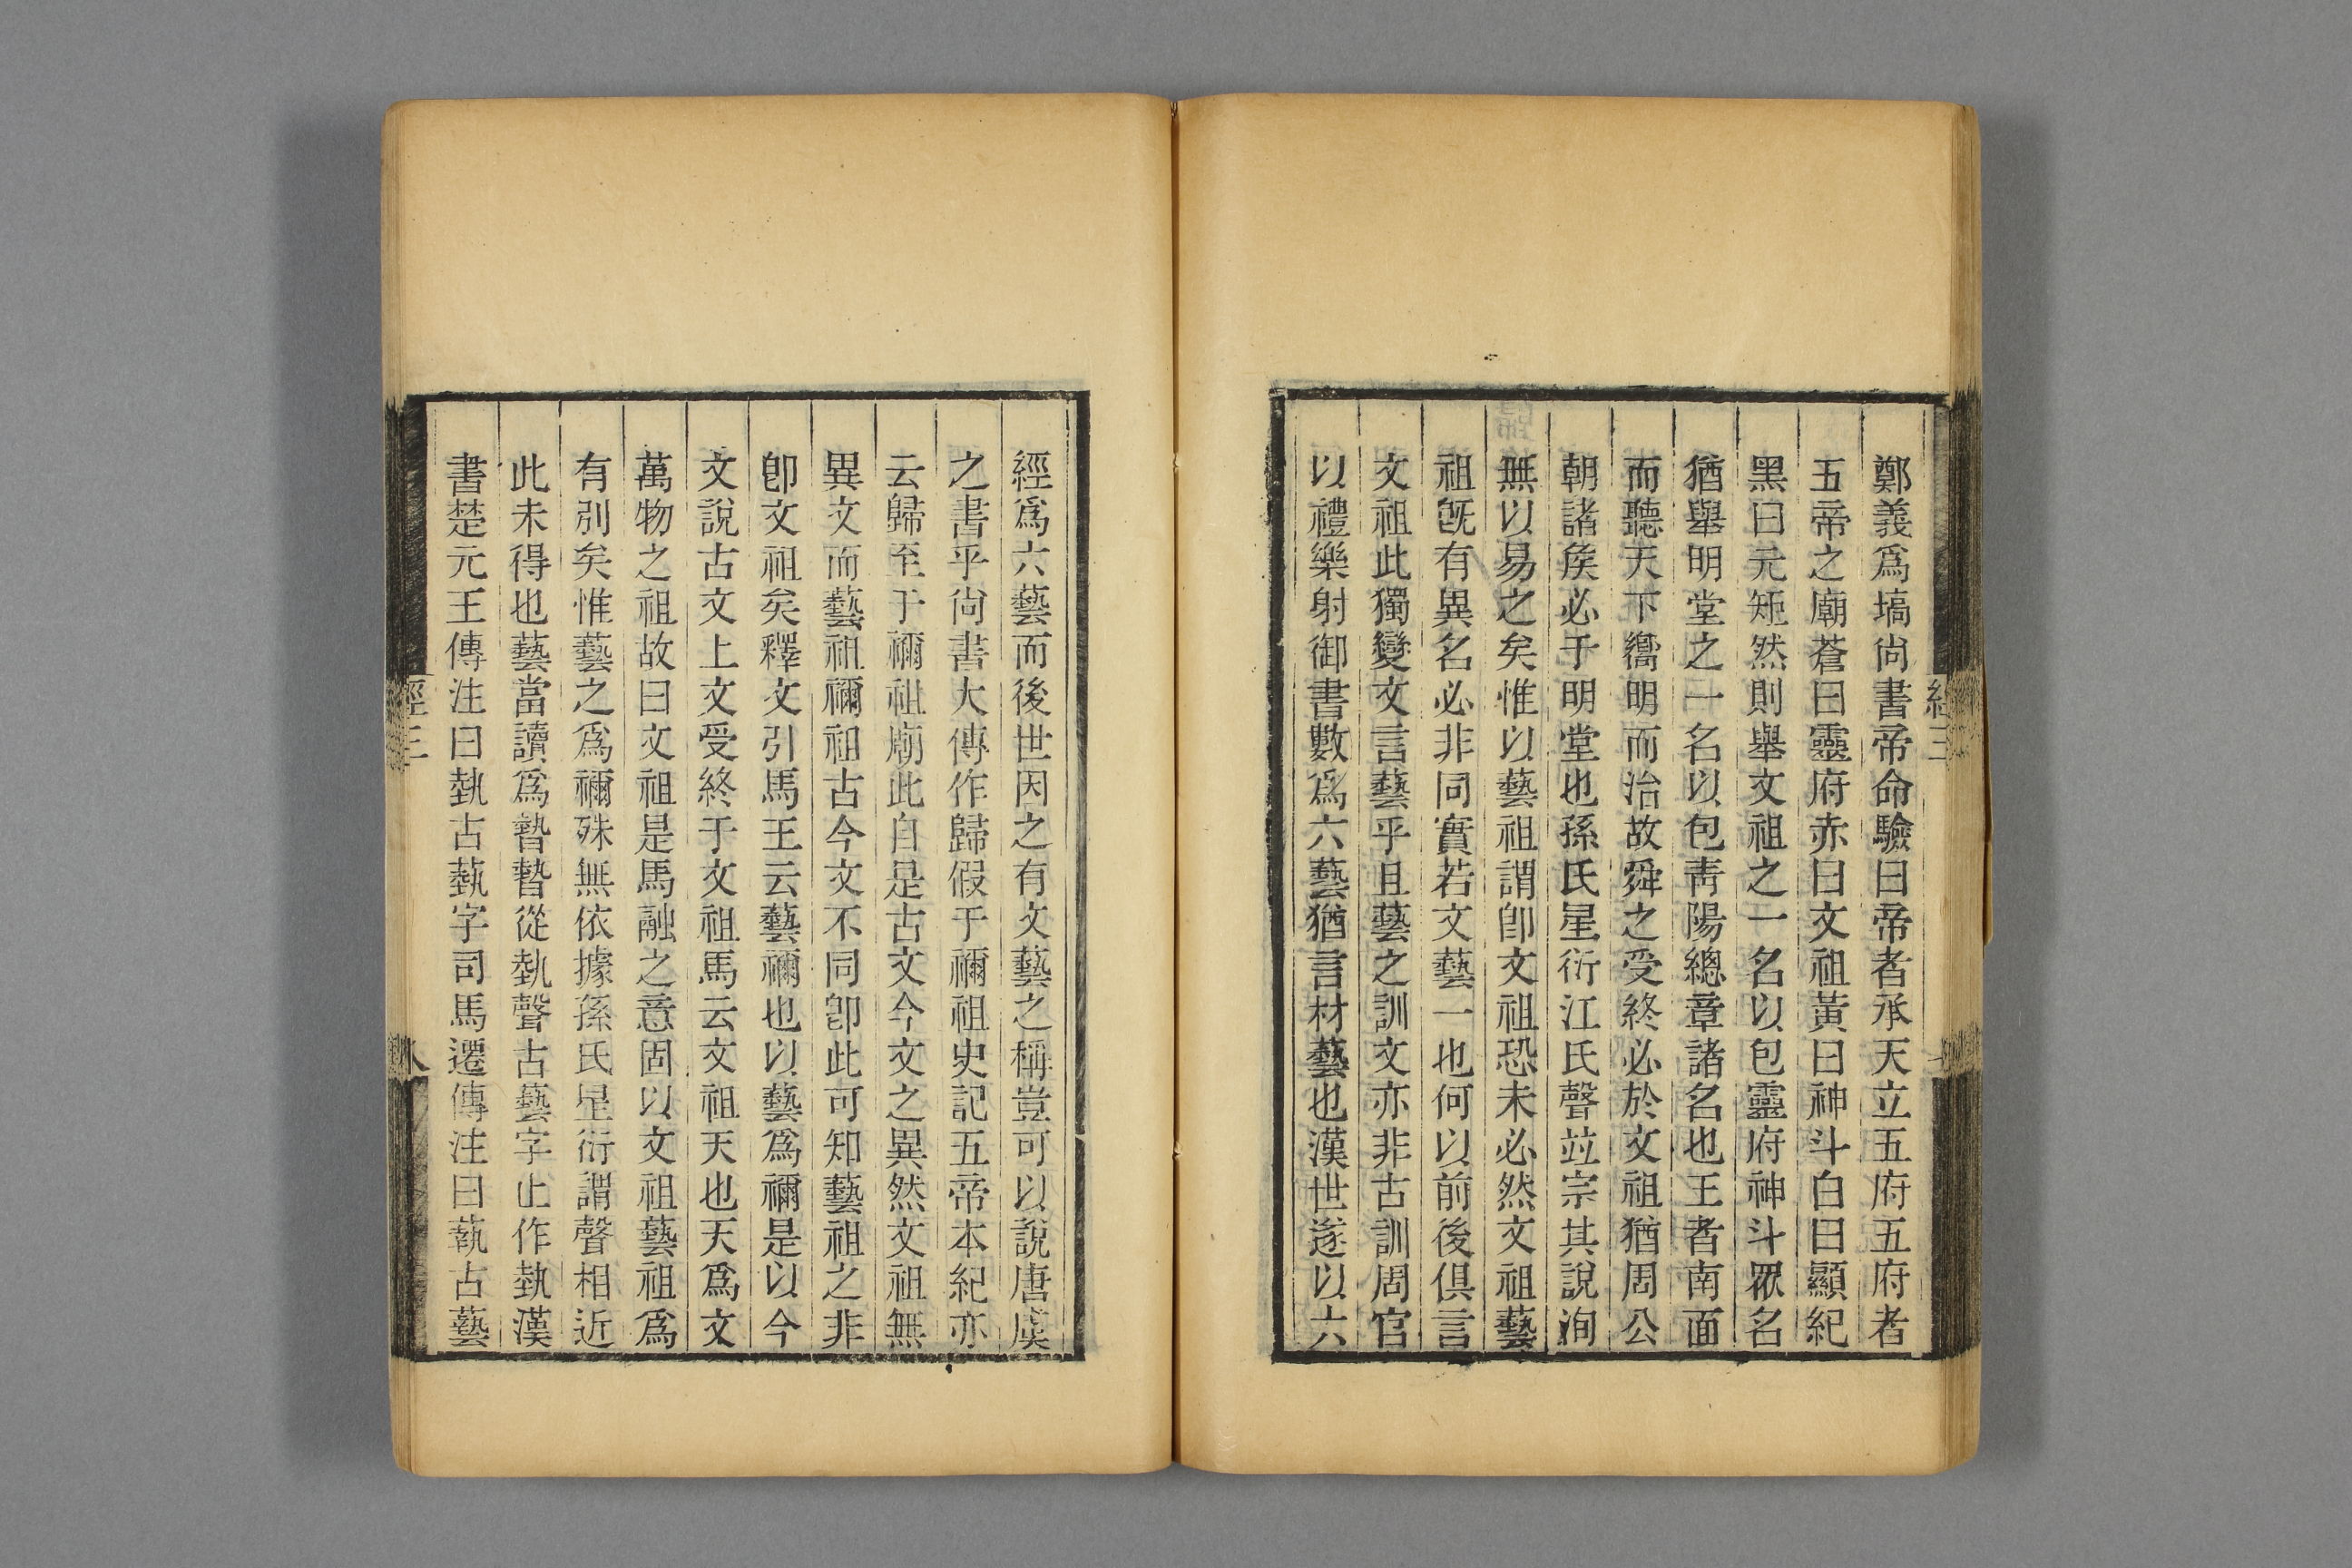 鄭義爲塙尙書帝命驗曰帝者承天立五府五府者
五帝之廟蒼曰靈府赤曰文祖黃曰神斗白曰顯紀
黑曰元矩然則舉文祖之一名以包靈府神斗眾名
猶舉明堂之一名以包靑陽總章諸名也王者南面
而聽天下嚮明而治故舜之受終必於文祖猶周公
朝諸矦必于明堂也孫氏星衍江氏聲竝宗其說洵
無以易之矣惟以藝祖謂卽文祖恐未必然文祖藝
祖旣有異名必非同實若文藝一也何以前後俱言
文祖此獨變文言藝乎且藝之訓文亦非古訓周官
以禮樂射御書數爲六藝猶言材藝也漢世遂以六
經爲六藝而後世因之有文藝之稱豈可以說唐虞
之書乎尙書大傳作歸假于禰祖史記五帝本紀亦
云歸至于禰祖廟此自是古文今文之異然文祖無
異文而藝祖禰祖古今文不同卽此可知藝祖之非
卽文祖矣釋文引馬王云藝禰也以藝爲禰是以今
文說古文上文受終于文祖馬云文祖天也天爲文
萬物之祖故曰文祖是馬融之意固以文祖藝祖爲
有別矣惟藝之爲禰殊無依據孫氏星衍謂聲相近
此未得也藝當讀爲暬暬從埶聲古藝字止作埶漢
書楚元王傳注曰埶古蓺字司馬遷傳注曰蓺古藝
經三
經三
八